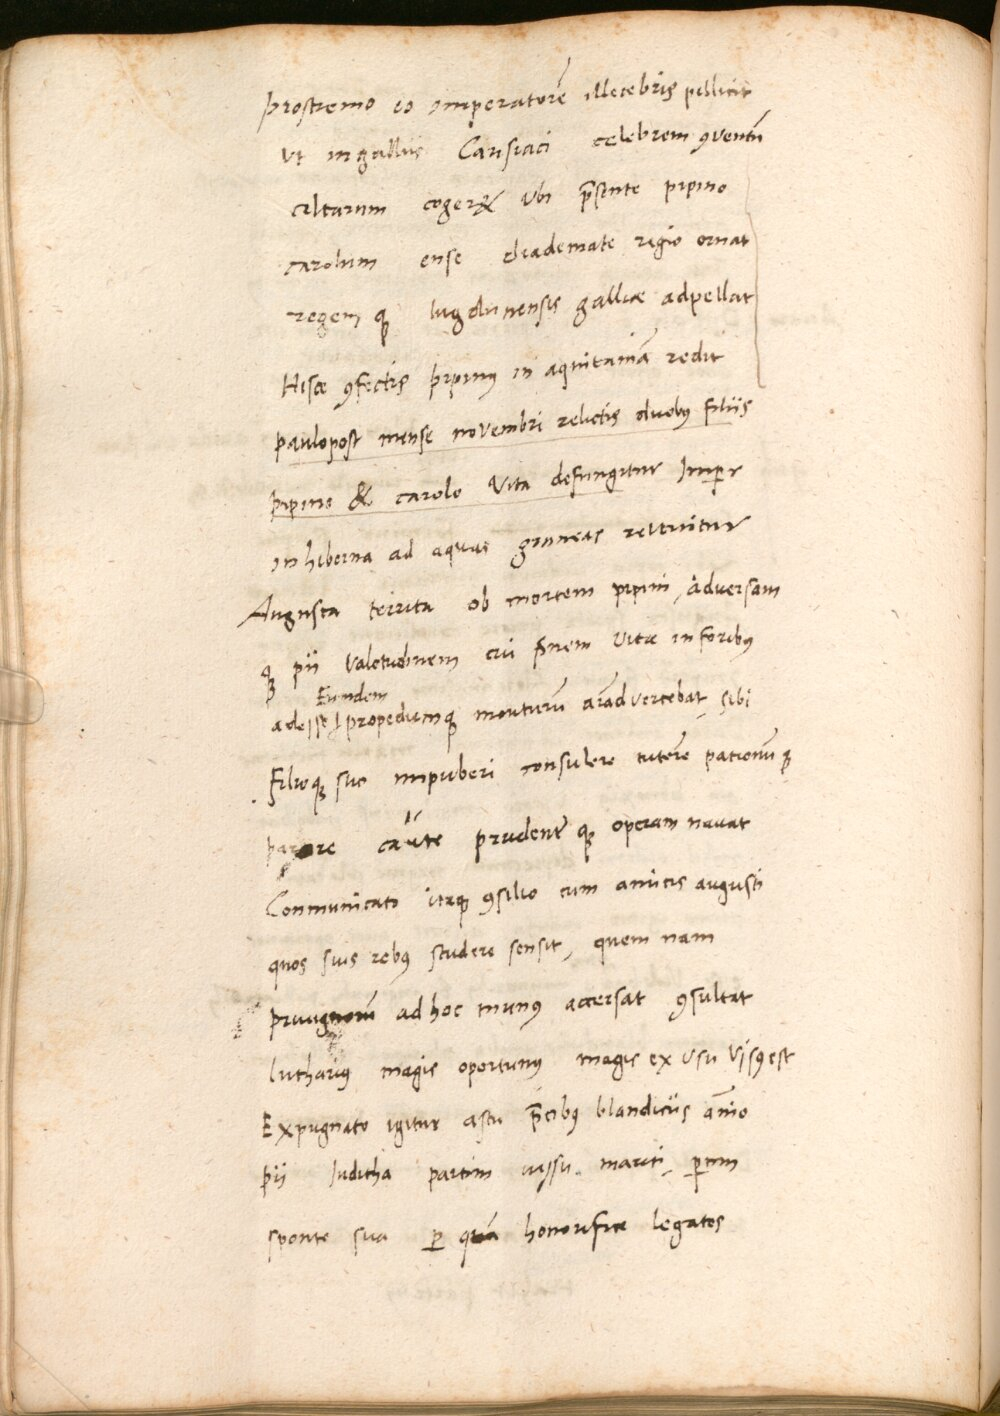 prostremo eo imperatorē illecebris pillicit
Vt in galliis Carisiaci celebrem ꝯventū
celtarum cogeret Vbi p̄sente pipino
carolum ense diademate regio ornat
regem qꝫ lugdunensis galliae adpellat
Hisce ꝯfectis pipinꝰ in aquitaniā redit
paulopost mense novembri relictis duobꝰ filiis
pipino & carolo Vita defungitur Imꝑr
in hiberna ad aquas graneas revertitur
Augusta territa ob mortem pipini, adversam
qꝫ pii Valetudinem cui finem Vitae in foribꝰ
Eundem
adesse propediemqꝫ moriturū aīadvertebat, sibi
Filioqꝫ suo impuberi consulere tutorē patronūqꝫ
parare caute prudenterqꝫ operam navat
Communicato itaqꝫ ꝯsilio cum amicis augusti
quos suis rebꝰ studere sensit, quem nam
privignorū ad hoc munꝰ accersat ꝯsultat
lutharius magis oportunꝰ magis ex Vsu Visꝰ est
Expugnato igitur astu p̄cibꝰ blandiciis aīmo
pii Iuditha partim iussu mariti, ꝑtim
sponte sua ꝑ quā honorifice legatos